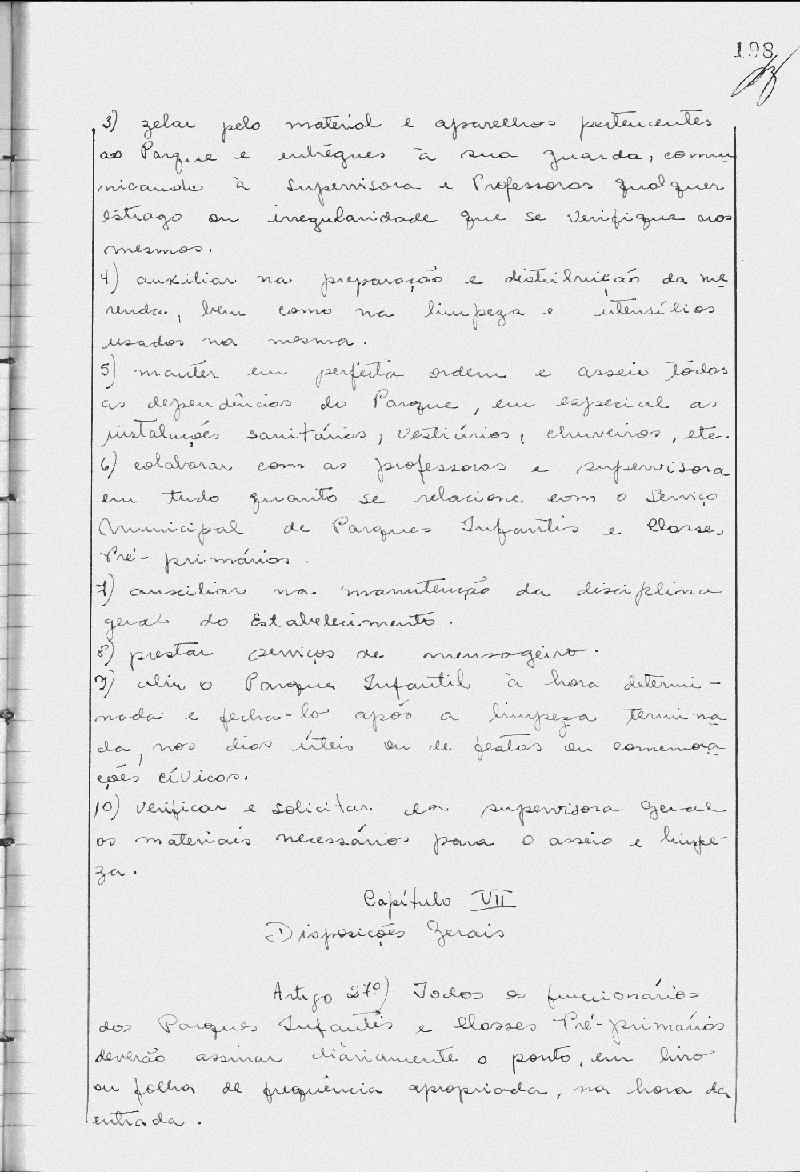 198
3) zelar pelo material e aparelhos pertencentes
ao Parque e entregues à sua guarda, comu
nicando à Supervisora e Professoras qualquer
estrago ou irregularidade que se verifique nos
mesmos.
4) auxiliar na preparação e distribuição da me
renda, bem como na limpeza e utensílios
usados na mesma.
5) manter em perfeita ordem e asseio tôdas
as dependências do Parque, em especial as
instalações sanitárias, vestiários, chuveiros, etc.
6) colaborar com as professoras e supervisora
em tudo quanto se relacione com o Serviço
Municipal de Parques Infantis e Classes
Pré-primários.
7) auxiliar na manutenção da disciplina
geral do Estabelecimento.
8) prestar serviços de mensageiro.
9) abrir o Parque Infantil à hora determi-
nada e fechá-lo após a limpeza termina
da, nos dias úteis ou de festas ou comemora
ções cívicas.
10) verificar e solicitar da supervisora Geral
os materiais necessários para o asseio e limpe-
za.
Capítulo VII
Disposições Gerais
Artigo 27º) Todos os funcionários
dos Parques Infantis e Classes Pré-primários
deverão assinar diàriamente o ponto, em livro
ou folha de frequência apropriada, na hora da
entrada.